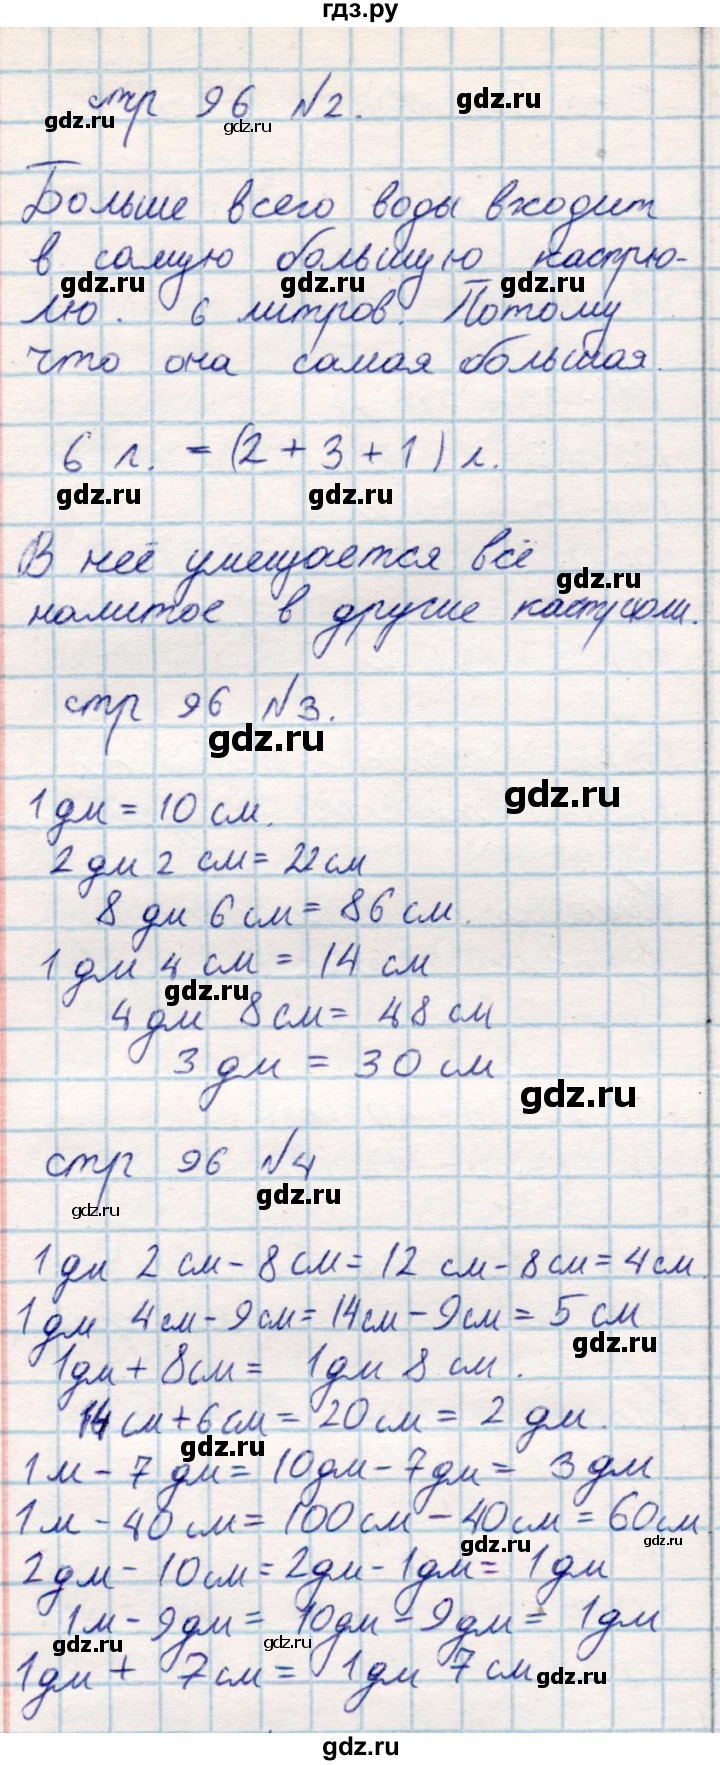 гдз.ру
стр 96 №2.
gdz.ru
gdz.ru
gdz.ru
Больше всего воды входит
в самую большую кастрю-
gdz.ru gdz.ru gdz.ru
лю. 6 литров. Потому
что она самая большая.
6 л. = (2 + 3 + 1) л.
gdz.ru gdz.ru
В неё умещается всё
gdz.ru
налитое в другие
стр 96 №3.
gdz.ru
gdz.ru
1 дм = 10 см.
2 дм 2 см = 22 см
8 дм 6 см = 86 см.
1 дм 4 см = 14 см
gdz.ru
4 дм 8 см = 48 см
3 дм = 30 см
gdz.ru
стр 96 №4
gdz.ru
gdz.ru
1 дм 2 см - 8 см = 12 см - 8 см = 4 см.
1 дм 4 см - 9 см = 14 см - 9 см = 5 см
gdz.ru
1 дм + 8 см = 1 дм 8 см.
14 см + 6 см = 20 см = 2 дм.
gdz.ru
1 м - 7 дм = 10 дм - 7 дм = 3 дм
1 м - 40 см = 100 см - 40 см = 60 см
gdz.ru gdz.ru
2 дм - 10 см = 2 дм - 1 дм = 1 дм
1 м - 9 дм = 10 дм - 9 дм = 1 дм
gdz.ru gdz.ru
1 дм + 7 см = 1 дм 7 см
gdz.ru
gdz.ru